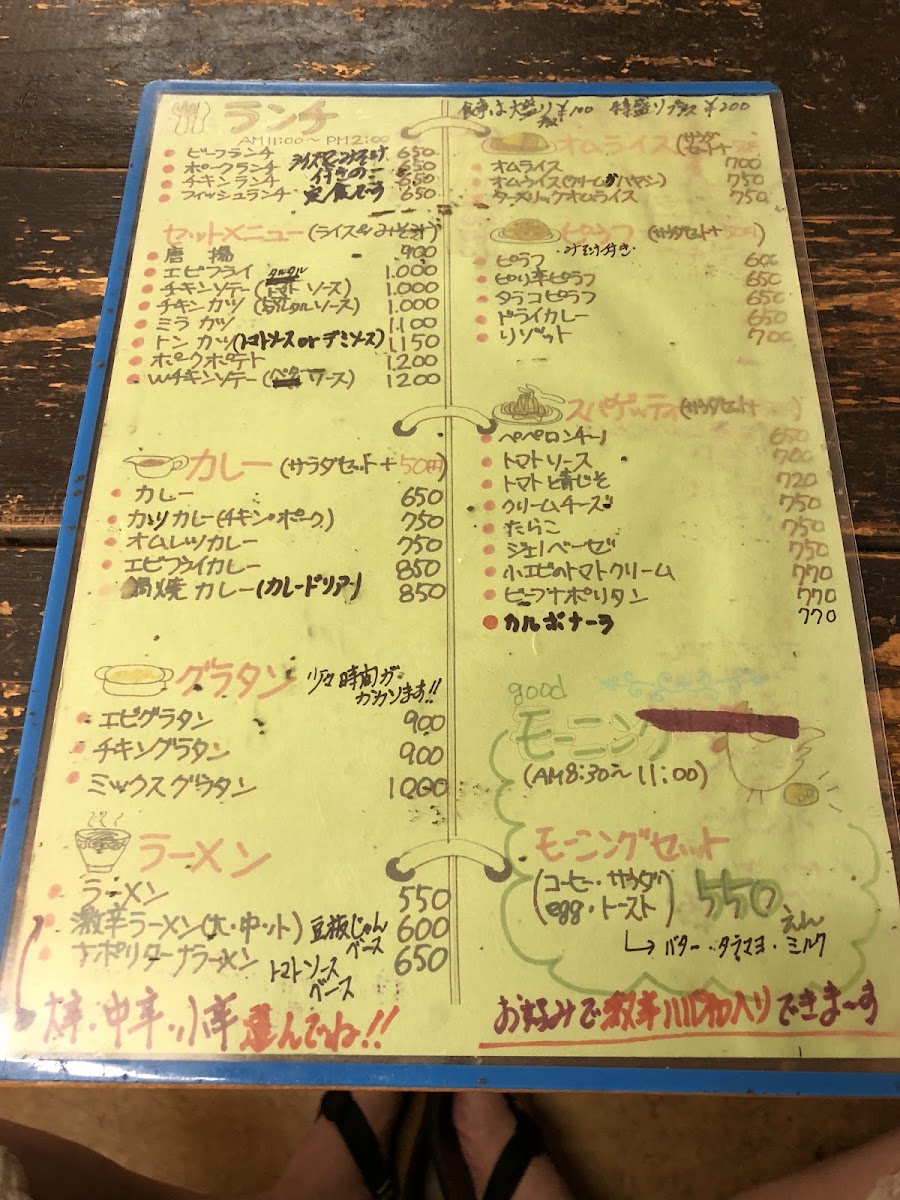 ランチ
AM11:00〜PM2:00
ビーフランチ 650
ポークランチ 650
チキンランチ 650
フィッシュランチ 650
ライスとみそ汁
付きの
定食です
セットメニュー(ライス みそ汁)
唐揚 900
エビフライ 1.000
タルタル
チキンソテー(トマトソース) 1.000
チキンカツ(タルタルソース) 1.000
ミラカツ 1.100
トンカツ(トマトソース or デミソース) 1.150
ポークポテト 1.200
Wチキンソテー(ソース) 1200
カレー(サラダセット+50円)
カレー 650
カツカレー(チキン・ポーク) 750
オムレツカレー 750
エビフライカレー 850
鍋焼カレー(カレードリア) 850
グラタン 少々時間が
かかります!!
エビグラタン 900
チキングラタン 900
ミックスグラタン 1000
ラーメン
ラーメン 550
激辛ラーメン(大・中・小) 豆板じゃん
ベース 600
ナポリターナラーメン 650
トマトソース
ベース
大辛・中辛・小辛 選んでね!!
食事は大盛り ¥100 特盛りプラス ¥200
オムライス(サラダ
セット+
オムライス 700
オムライス(クリーム ハヤシ) 750
ターメリックオムライス 750
ピラフ(サラダセット+50円)
・みそ汁付き・
ピラフ 600
ピリ辛ピラフ 650
タラコピラフ 650
ドライカレー 650
リゾット 700
スパゲッティ(サラダセット+
ペペロンチーノ 650
トマトソース 700
トマトと青じそ 720
クリームチーズ 750
たらこ 750
ジェノベーゼ 750
小エビのトマトクリーム 770
ビーフナポリタン 770
カルボナーラ 770
good
モーニング
(AM8:30〜11:00)
モーニングセット
(コーヒー・サラダ
egg・トースト) 550えん
バター・タラマヨ・ミルク
お好みで 激辛 入りできま〜す